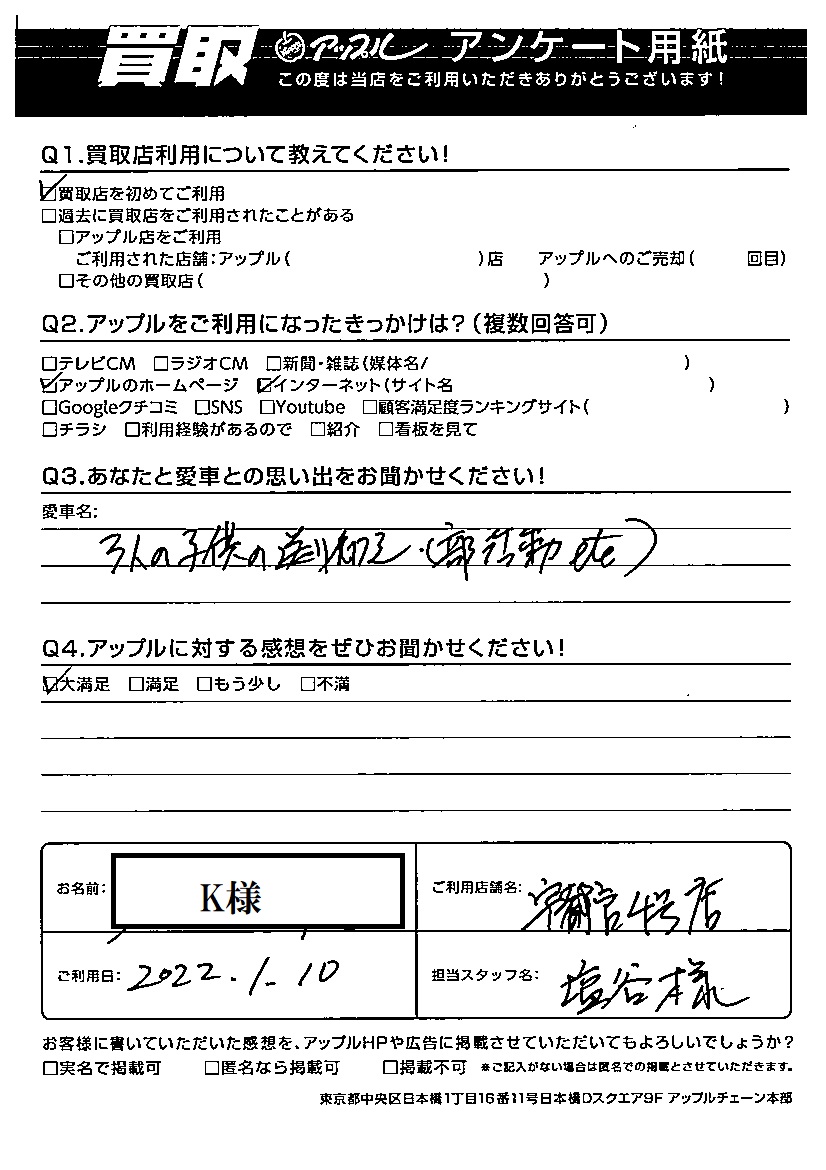 買取 アップル アンケート用紙
この度は当店をご利用いただきありがとうございます!
Q1.買取店利用について教えてください!
☑買取店を初めてご利用
□過去に買取店をご利用されたことがある
□アップル店をご利用
ご利用された店舗:アップル( )店 アップルへのご売却( 回目)
□その他の買取店( )
Q2.アップルをご利用になったきっかけは?(複数回答可)
□テレビCM □ラジオCM □新聞・雑誌(媒体名/ )
☑アップルのホームページ ☑インターネット(サイト名 )
□Googleクチコミ □SNS □Youtube □顧客満足度ランキングサイト( )
□チラシ □利用経験があるので □紹介 □看板を見て
Q3.あなたと愛車との思い出をお聞かせください!
愛車名:
3人の子供の送り迎え・(部活動 etc)
Q4.アップルに対する感想をぜひお聞かせください!
☑大満足 □満足 □もう少し □不満
お名前: K様 ご利用店舗名: 宇都宮4号店
ご利用日: 2022.1.10 担当スタッフ名: 塩谷様
お客様に書いていただいた感想を、アップルHPや広告に掲載させていただいてもよろしいでしょうか?
□実名で掲載可 □匿名なら掲載可 □掲載不可 ※ご記入がない場合は匿名での掲載とさせていただきます。
東京都中央区日本橋1丁目16番11号日本橋Dスクエア9F アップルチェーン本部